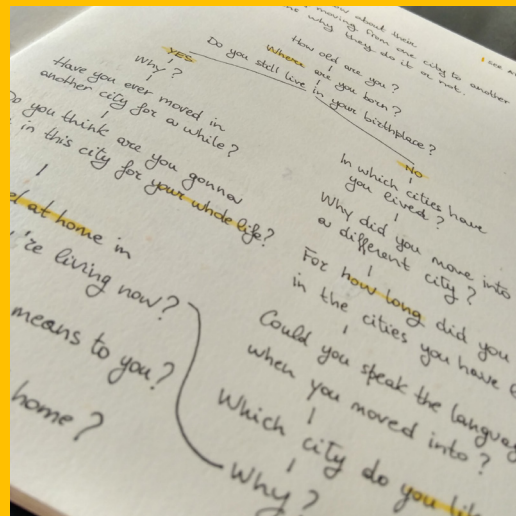 about their
moving from one city to another
why they do it or not.
How old are you?
Where are you born?
Do you still live in your birthplace?
YES
Why?
Have you ever moved in
another city for a while?
you think are you gonna
in this city for your whole life?
at home in
're living now?
means to you?
home?
No
In which cities have
you lived?
Why did you move into
a different city?
For how long did you
in the cities you have
Could you speak the
when you moved into?
Which city do you
Why?